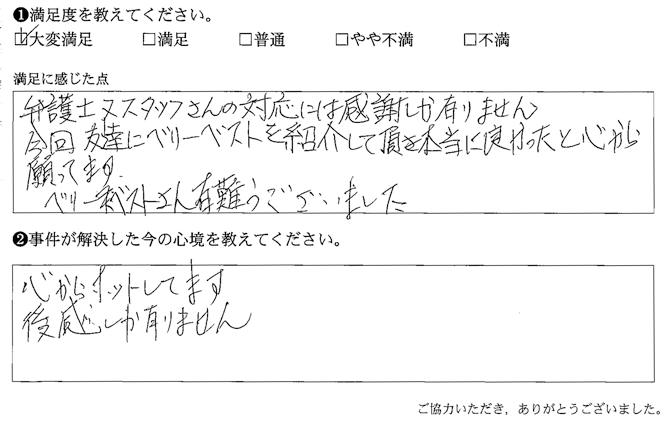 ❶満足度を教えてください。
☑大変満足 □満足 □普通 □やや不満 □不満
満足に感じた点
弁護士又スタッフさんの対応には感謝しか有りません
今回友達にベリーベストを紹介して頂き本当に良かったと心から
願ってます。
ベリーベストさん有難うございました
❷事件が解決した今の心境を教えてください。
心からホットしてます
感しか有りません
ご協力いただき，ありがとうございました。